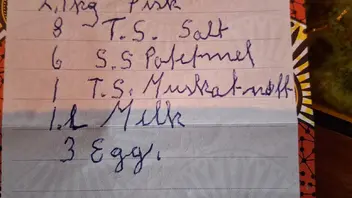 2,1kg Fisk
8 T.S. Salt
6 S.S Potetmel
1 T.S. Muskatnøtt
1.L Melk
3 Egg.